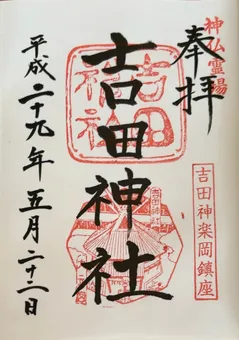 神仏霊場
奉拝
吉田神社
吉田神社
吉田神社
吉田神楽岡鎮座
平成二十九年五月二十二日